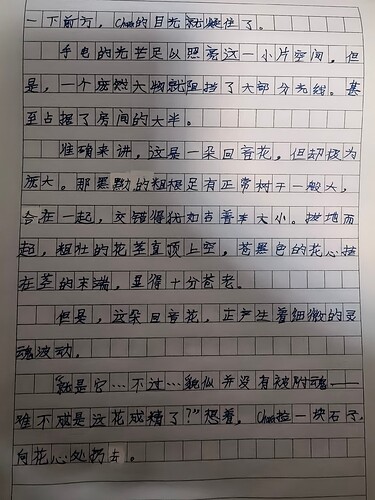 一下前方，Chan的目光就凝住了。
手电的光芒足以照亮这一小片空间，但
是，一个庞然大物就阻挡了大部分光线。甚
至占据了房间的大半。
准确来讲，这是一朵回音花，但却极为
庞大。那黑黝的粗根足有正常树干一般大，
合在一起，交错得犹如古董大小。拔地而
起，粗壮的花茎直顶上空，苍黑色的花心挂
在茎的末端，显得十分苍老。
但是，这朵回音花，正产生着细微的灵
魂波动。
“就是它…不过…貌似并没有被附魂——
难不成是这花成精了？”想着，Chan捡一块石子，
向花心处扔去。